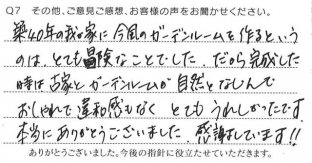 Q7 その他、ご意見ご感想、お客様の声をお聞かせください。
築40年の我が家に今風のガーデンルームを作るという
のは、とても冒険なことでした。だから完成した
時は古家とガーデンルームが自然となじんで
おしゃれで違和感もなく とてもうれしかったです
本当にありがとうございました。感謝しています!!
ありがとうございました。今後の指針に役立たせていただきます。